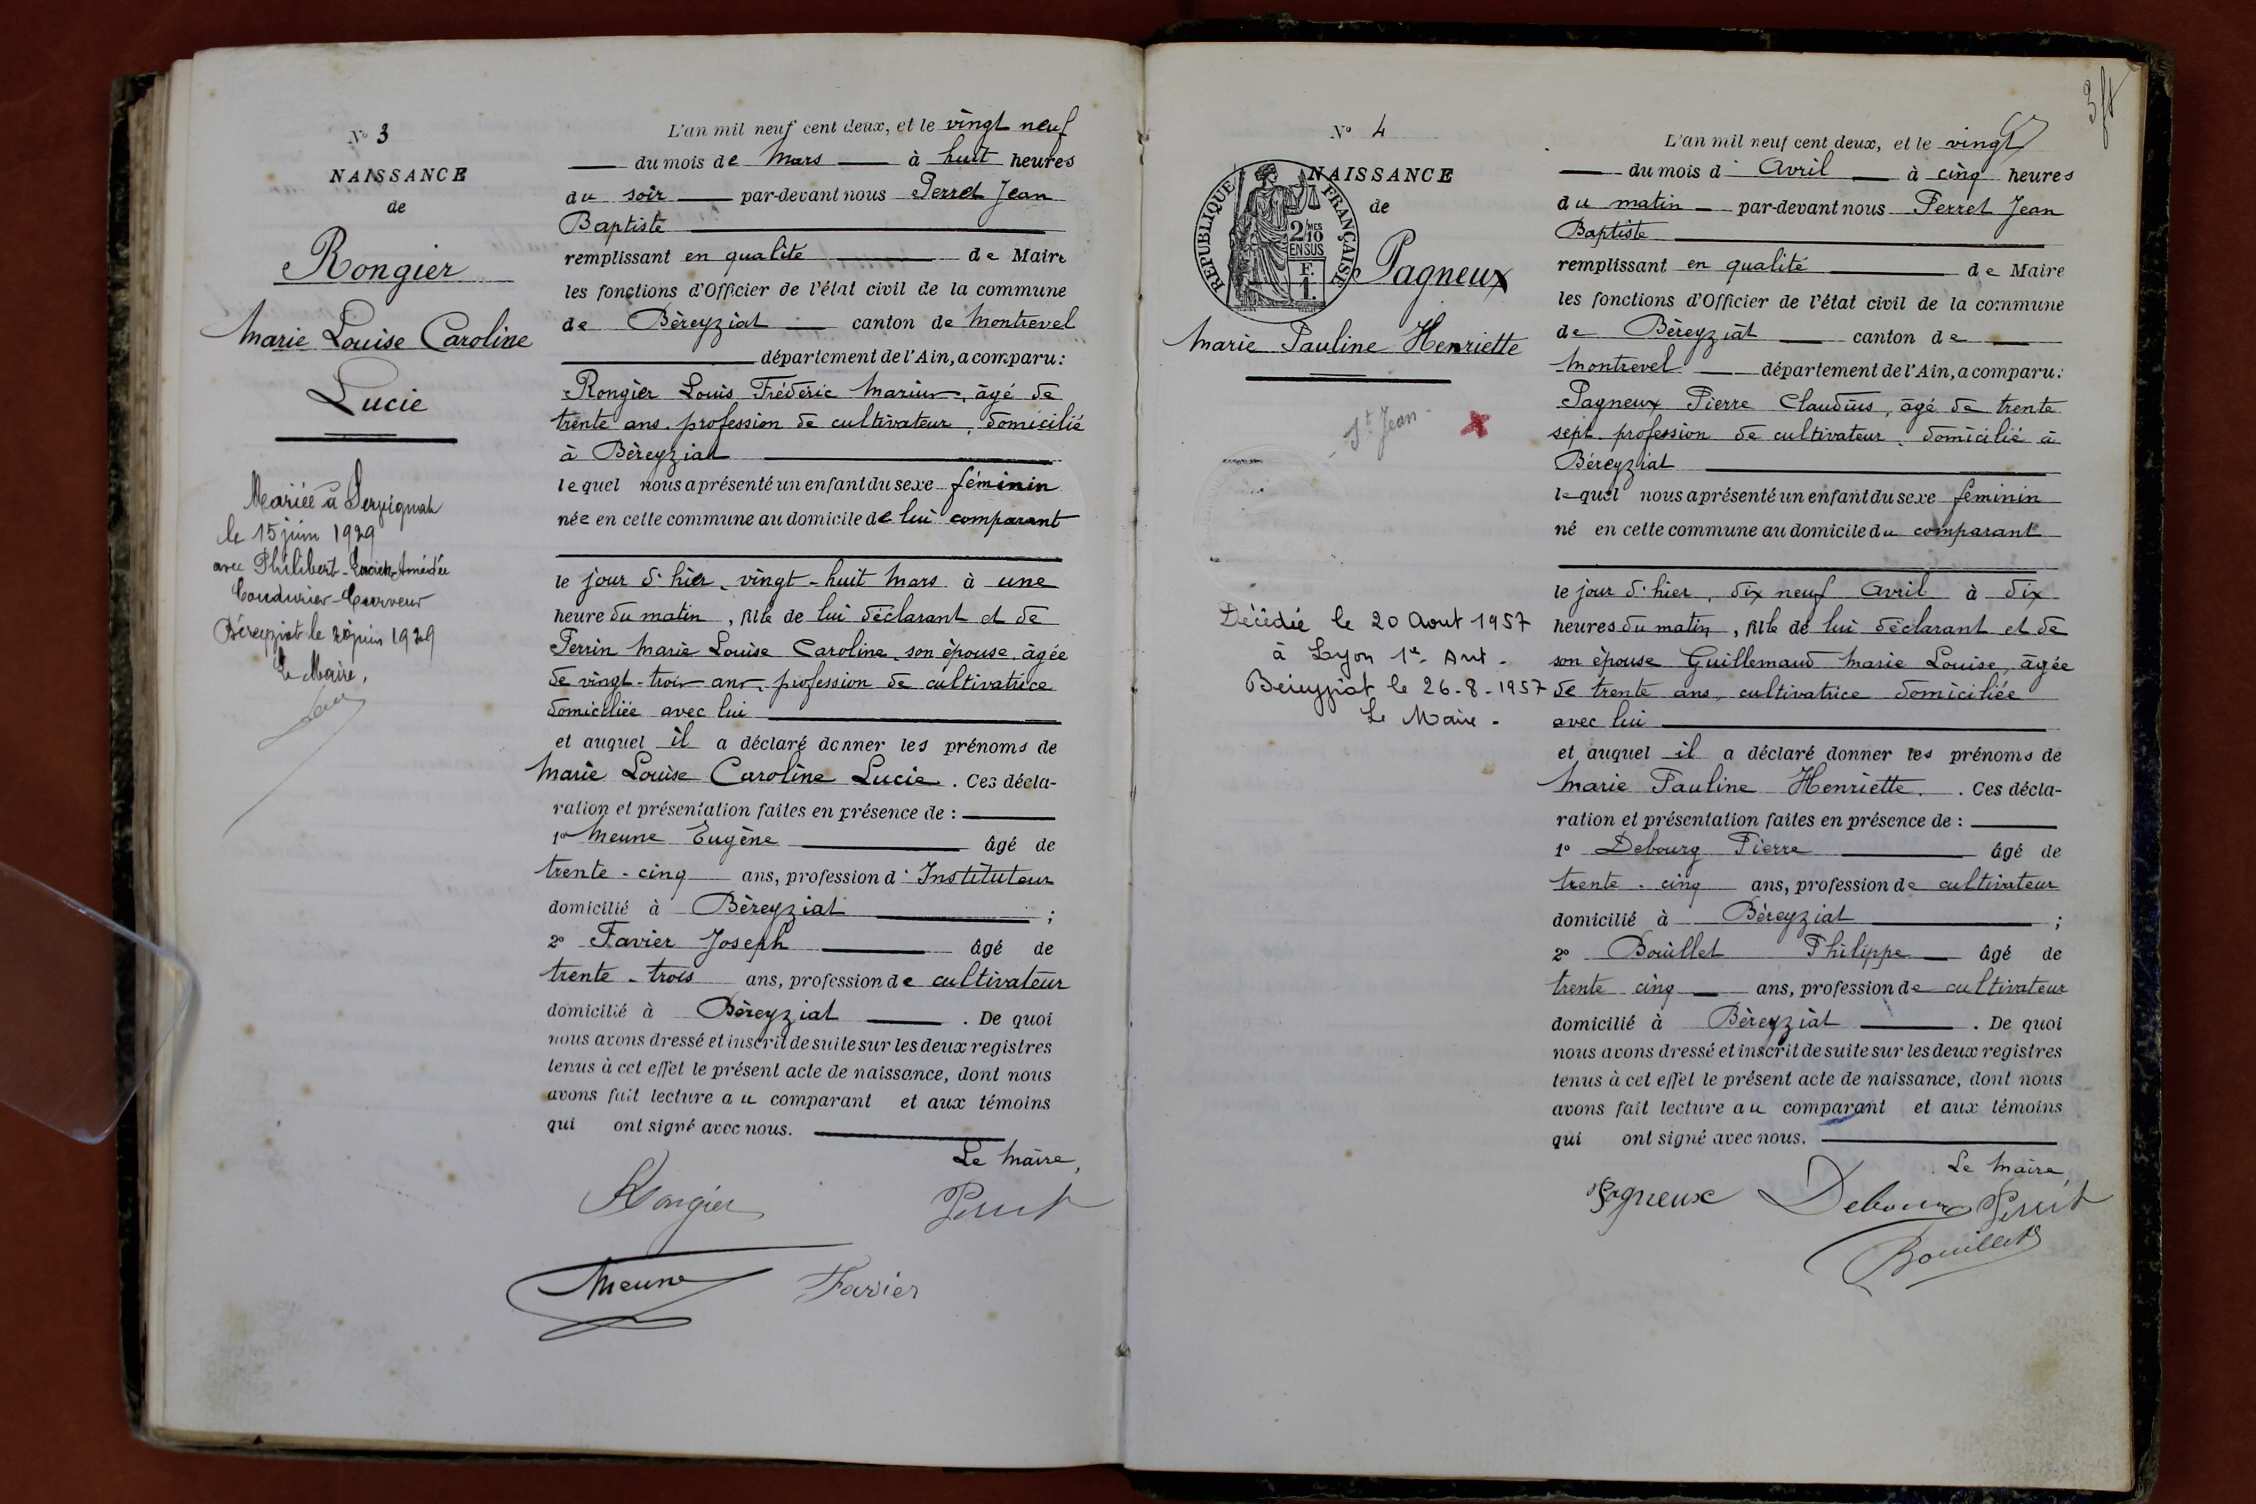 N° 3
NAISSANCE
de
Rongier
Marie Louise Caroline
Lucie
Mariée à Serpignat
le 15 juin 1929
avec Philibert-Lucien-Amédée
Coudurier-Curveur
Béreyziat le 20 juin 1929
Le Maire,
L'an mil neuf cent deux, et le vingt neuf
du mois de Mars à huit heures
du soir par-devant nous Perret Jean
Baptiste
remplissant en qualité de Maire
les fonctions d'Officier de l'état civil de la commune
de Béreyziat canton de Montrevel
département de l'Ain, a comparu:
Rongier Louis Frédéric Marius, âgé de
trente ans, profession de cultivateur, domicilié
à Béreyziat
lequel nous a présenté un enfant du sexe féminin
née en cette commune au domicile de lui comparant
le jour d'hier, vingt-huit Mars à une
heure du matin, fille de lui déclarant et de
Perrin Marie Louise Caroline, son épouse, âgée
de vingt-trois ans, profession de cultivatrice
domiciliée avec lui
et auquel il a déclaré donner les prénoms de
Marie Louise Caroline Lucie. Ces décla-
ration et présentation faites en présence de:
1° Meune Eugène âgé de
trente-cinq ans, profession d'Instituteur
domicilié à Béreyziat ;
2° Favier Joseph âgé de
trente-trois ans, profession de cultivateur
domicilié à Béreyziat . De quoi
nous avons dressé et inscrit de suite sur les deux registres
tenus à cet effet le présent acte de naissance, dont nous
avons fait lecture au comparant et aux témoins
qui ont signé avec nous.
Le Maire,
Rongier Perret
Meune Favier
N° 4
NAISSANCE
de
REPUBLIQUE FRANÇAISE
2/10 MES
EN SUS
F.
1.
Pagneux
Marie Pauline Henriette
- St Jean -
Décédée le 20 Aout 1957
à Lyon 1er Art -
Béreyziat le 26-8-1957
Le Maire -
L'an mil neuf cent deux, et le vingt
du mois d'Avril à cinq heures
du matin par-devant nous Perret Jean
Baptiste
remplissant en qualité de Maire
les fonctions d'Officier de l'état civil de la commune
de Béreyziat canton de
Montrevel département de l'Ain, a comparu:
Pagneux Pierre Claudius, âgé de trente
sept profession de cultivateur, domicilié à
Béreyziat
lequel nous a présenté un enfant du sexe féminin
né en cette commune au domicile du comparant
le jour d'hier, dix neuf Avril à dix
heures du matin, fille de lui déclarant et de
son épouse Guillemaud Marie Louise, âgée
de trente ans, cultivatrice domiciliée
avec lui
et auquel il a déclaré donner les prénoms de
Marie Pauline Henriette. . Ces décla-
ration et présentation faites en présence de:
1° Debourg Pierre âgé de
trente-cinq ans, profession de cultivateur
domicilié à Béreyziat ;
2° Bouillet Philippe âgé de
trente cinq ans, profession de cultivateur
domicilié à Béreyziat . De quoi
nous avons dressé et inscrit de suite sur les deux registres
tenus à cet effet le présent acte de naissance, dont nous
avons fait lecture au comparant et aux témoins
qui ont signé avec nous.
Le Maire,
Pagneux Debourg Perret
Bouillet